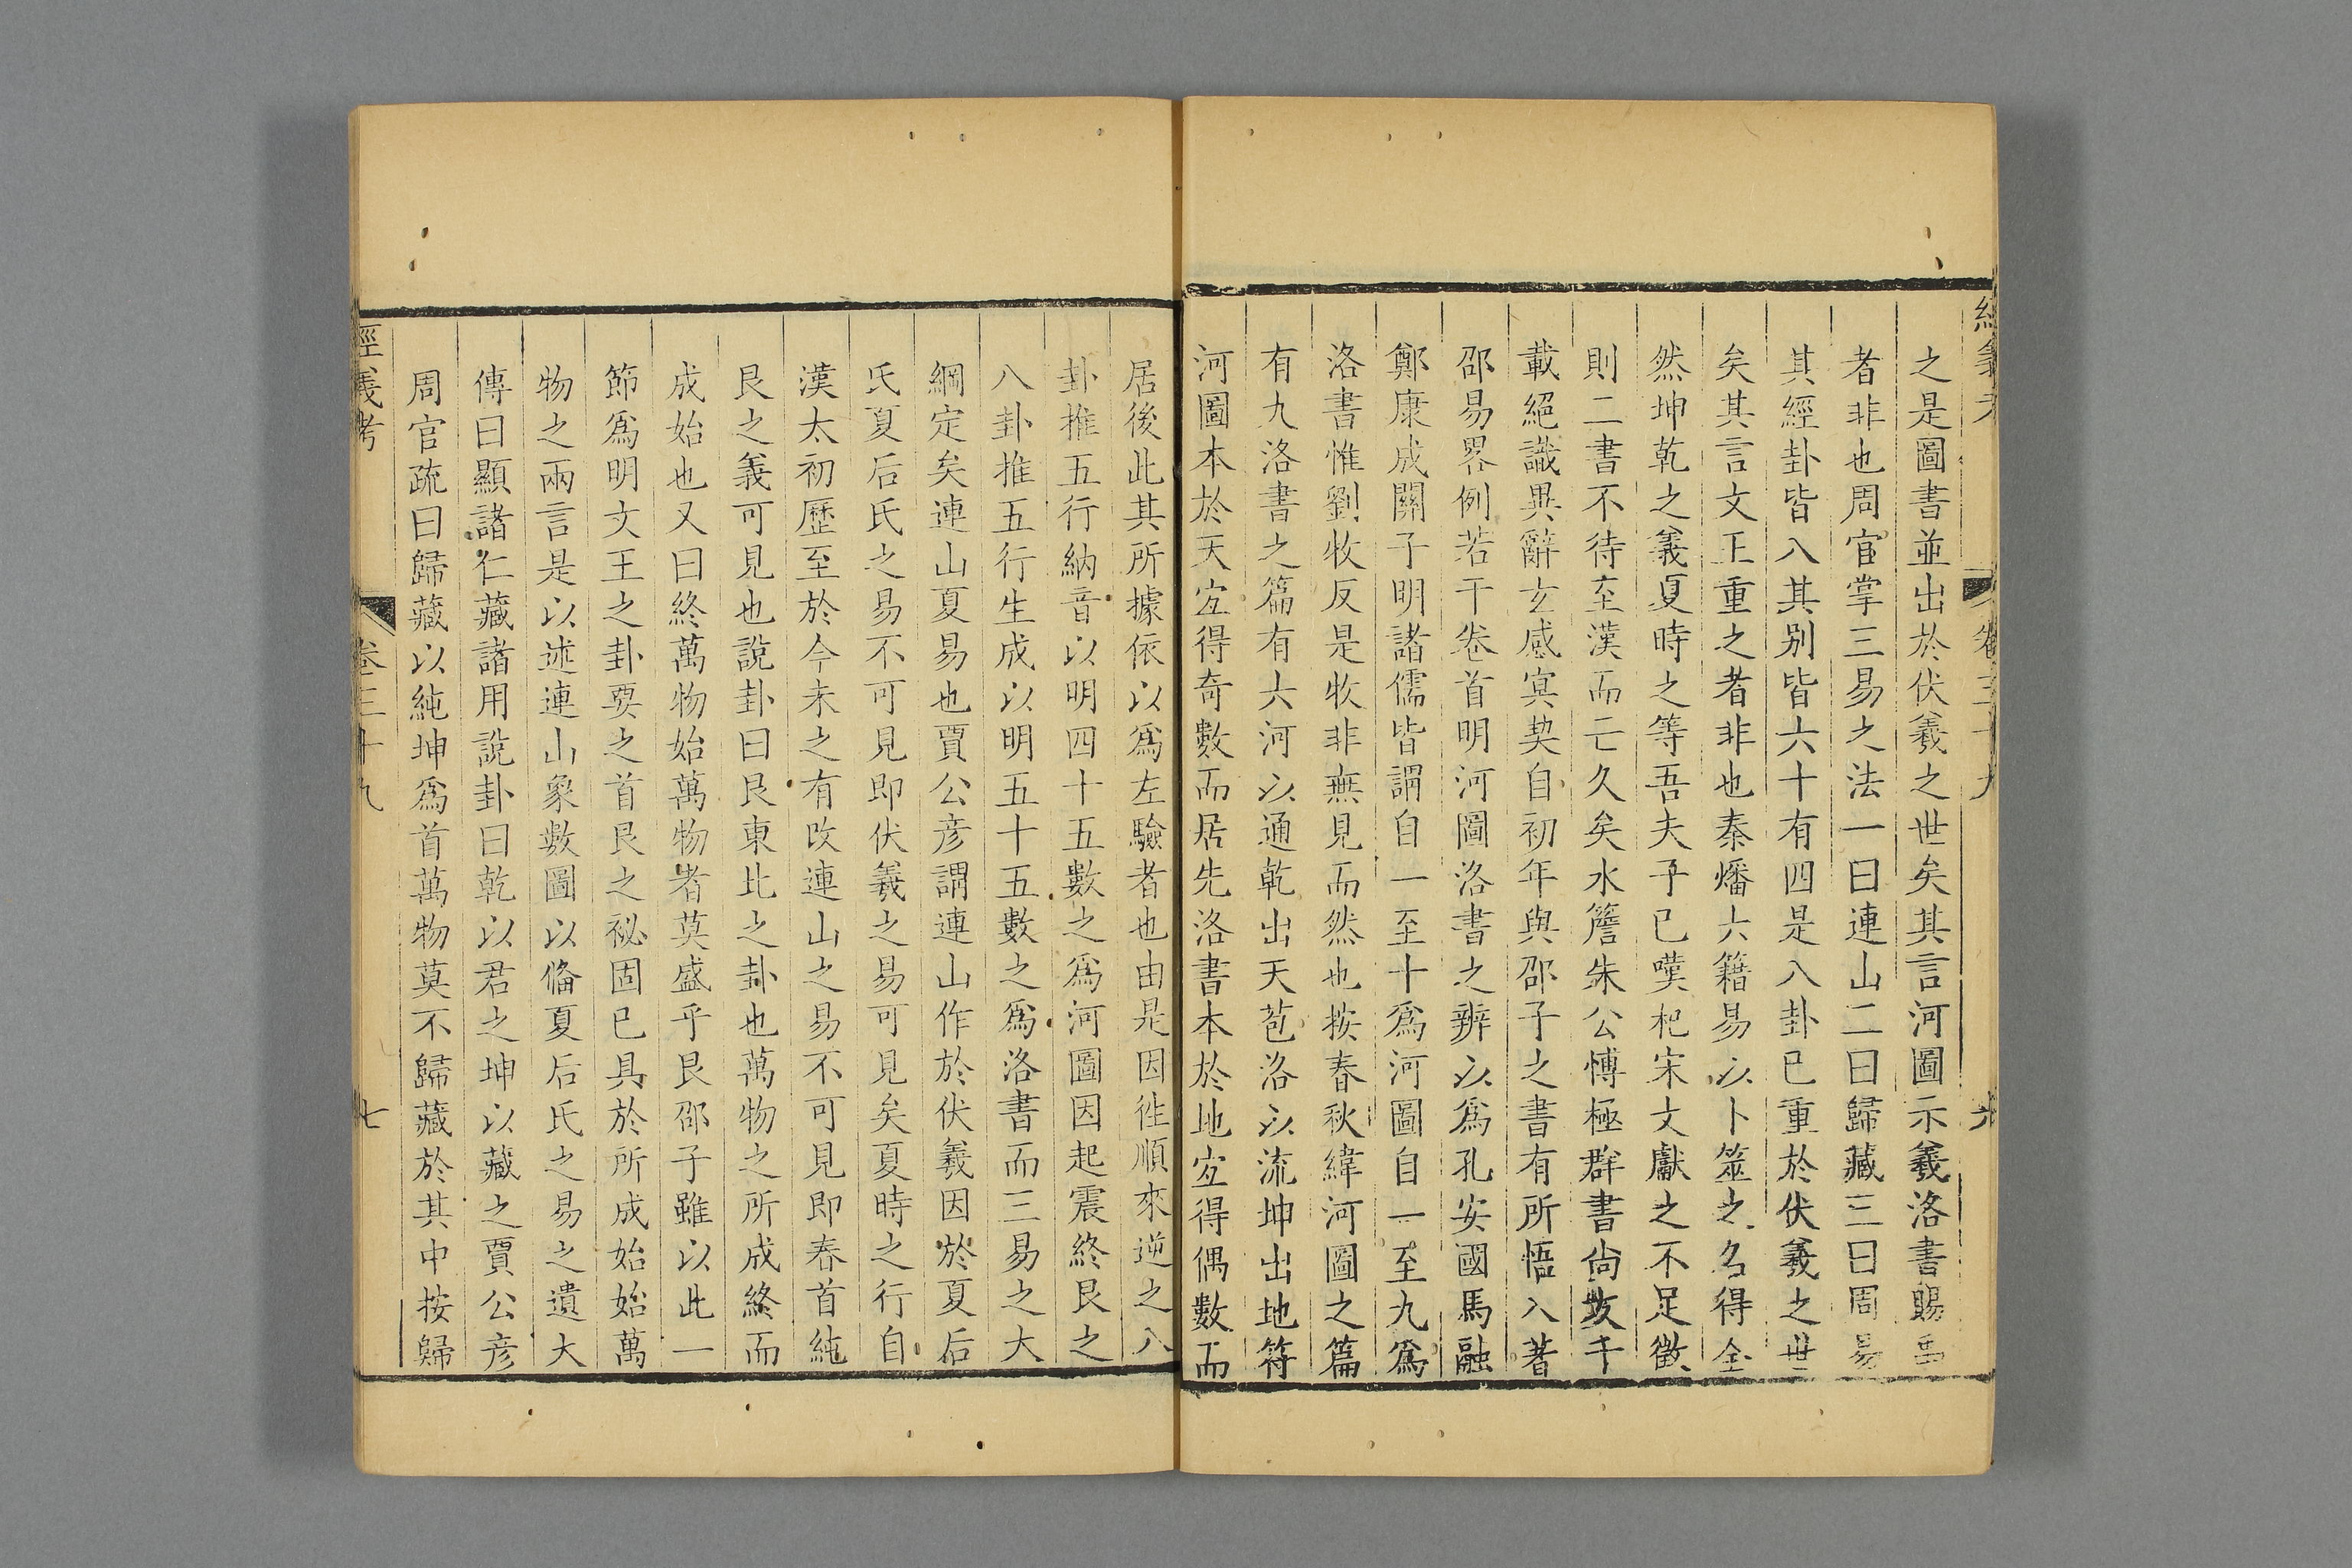 之是圖書並出於伏羲之世矣其言河圖示羲洛書賜禹
者非也周官掌三易之法一曰連山二曰歸藏三曰周易
其經卦皆八其别皆六十有四是八卦已重於伏羲之世
矣其言文王重之者非也秦燔六籍易以卜筮之名得全
然坤乾之義夏時之等吾夫子已嘆杞宋文獻之不足徵
則二書不待至漢而亡久矣水簷朱公愽極群書尚攷千
載絕識異辭玄感冥契自初年與邵子之書有所悟入著
邵易畧例若干卷首明河圖洛書之辨以爲孔安國馬融
鄭康成關子明諸儒皆謂自一至十爲河圖自一至九爲
洛書惟劉牧反是牧非無見而然也按春秋緯河圖之篇
有九洛書之篇有六河以通乾出天苞洛以流坤出地符
河圖本於天宐得奇數而居先洛書本於地宐得偶數而
居後此其所據依以爲左驗者也由是因徃順來逆之八
卦推五行納音以明四十五數之爲河圖因起震終艮之
八卦推五行生成以明五十五數之爲洛書而三易之大
綱定矣連山夏易也賈公彦謂連山作於伏羲因於夏后
氏夏后氏之易不可見即伏羲之易可見矣夏時之行自
漢太初歷至於今未之有改連山之易不可見即春首純
艮之義可見也說卦曰艮東北之卦也萬物之所成終而
成始也又曰終萬物始萬物者莫盛乎艮邵子雖以此一
節爲明文王之卦要之首艮之祕固已具於所成始始萬
物之兩言是以述連山象數圖以偹夏后氏之易之遺大
傳曰顯諸仁藏諸用說卦曰乾以君之坤以藏之賈公彦
周官疏曰歸藏以純坤爲首萬物莫不歸藏於其中按歸
經義考
卷三十九
七